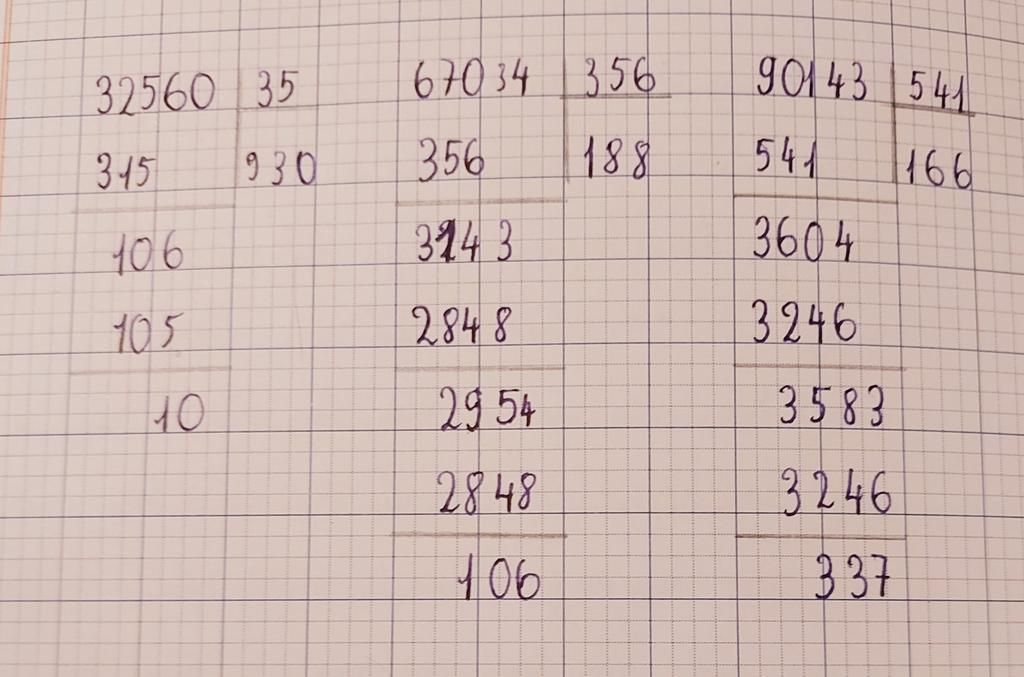 32560 35
315 930
106
105
10
67034 356
356 188
3143
2848
2954
2848
106
90143 541
541 166
3604
3246
3583
3246
337